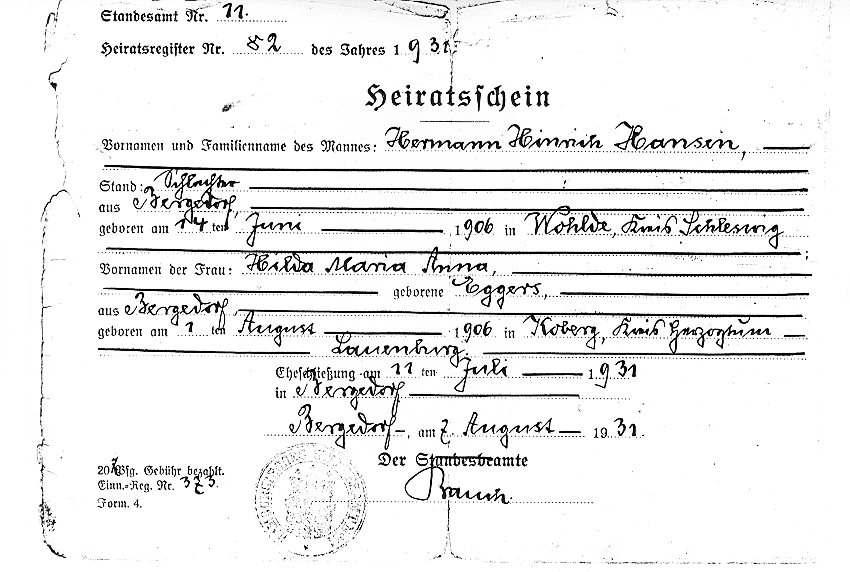 Standesamt Nr. 11.
Heiratsregister Nr. 82 des Jahres 1931.
Heiratsschein
Vornamen und Familienname des Mannes: Hermann Hinrich Hansen,
Stand: Schlachter
aus Bergedorf,
geboren am 14 ten Juni 1906 in Wohlde, Kreis Schleswig
Vornamen der Frau: Hilda Maria Anna,
geborene Eggers,
aus Bergedorf,
geboren am 1 ten August 1906 in Koberg, Kreis Herzogtum
Lauenburg.
Eheschließung am 11 ten Juli 1931
in Bergedorf.
Bergedorf, am 7. August 1931.
Der Standesbeamte
20 Pfg. Gebühr bezahlt.
Einn.-Reg. Nr. 373.
Form. 4.